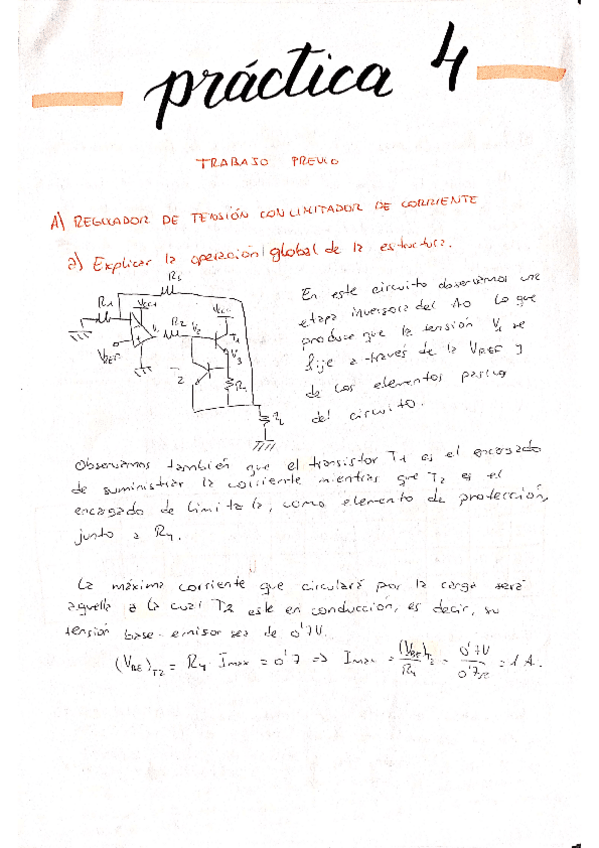 práctica 4
TRABAJO PREVIO
A) REGULADOR DE TENSIÓN CON LIMITADOR DE CORRIENTE
a) Explicar la operación global de la estructura.
En este circuito observamos una
etapa inversora del AO lo que
produce que la tensión V1 se
fije a través de la VREF y
de los elementos pasivos
del circuito.
R3
R1
Vcc+
R2
V2
Vcc+
V1
T1
V3
VREF
2
R4
RL
Observamos también que el transistor T1 es el encargado
de suministrar la corriente mientras que T2 es el
encargado de limitarla, como elemento de protección,
junto a R4.
La máxima corriente que circulará por la carga será
aquella a la cual T2 este en conducción, es decir, su
tensión base-emisor sea de 0'7V.
(VBE)T2 = R4 · Imax = 0'7 => Imax = (VBE)T2 / R4 = 0'7V / 0'7Ω = 1 A.